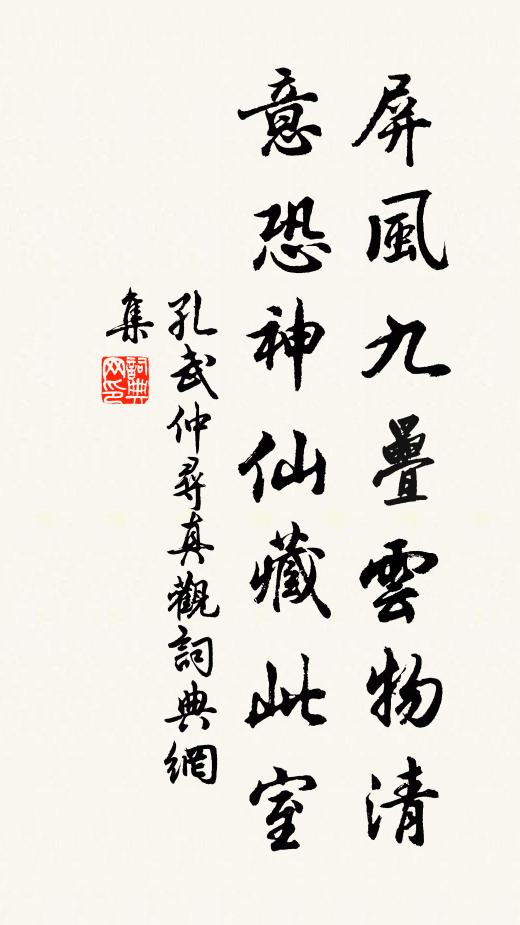 屏風九疊雲物清
意恐神仙藏此室
孔武仲尋真觀詞典網
集
詞典網印